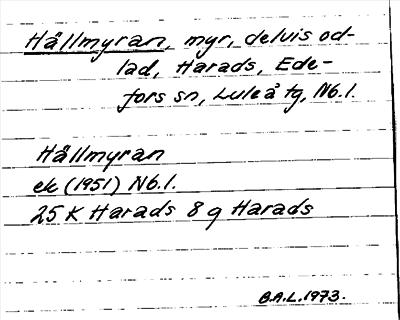 Hållmyran, myr, delvis od-
lad, Harads, Ede-
fors sn, Luleå tg, Nb.l.
Hållmyran
ek (1951) Nb.l.
25 K Harads 8 g Harads
B.A.L. 1973.